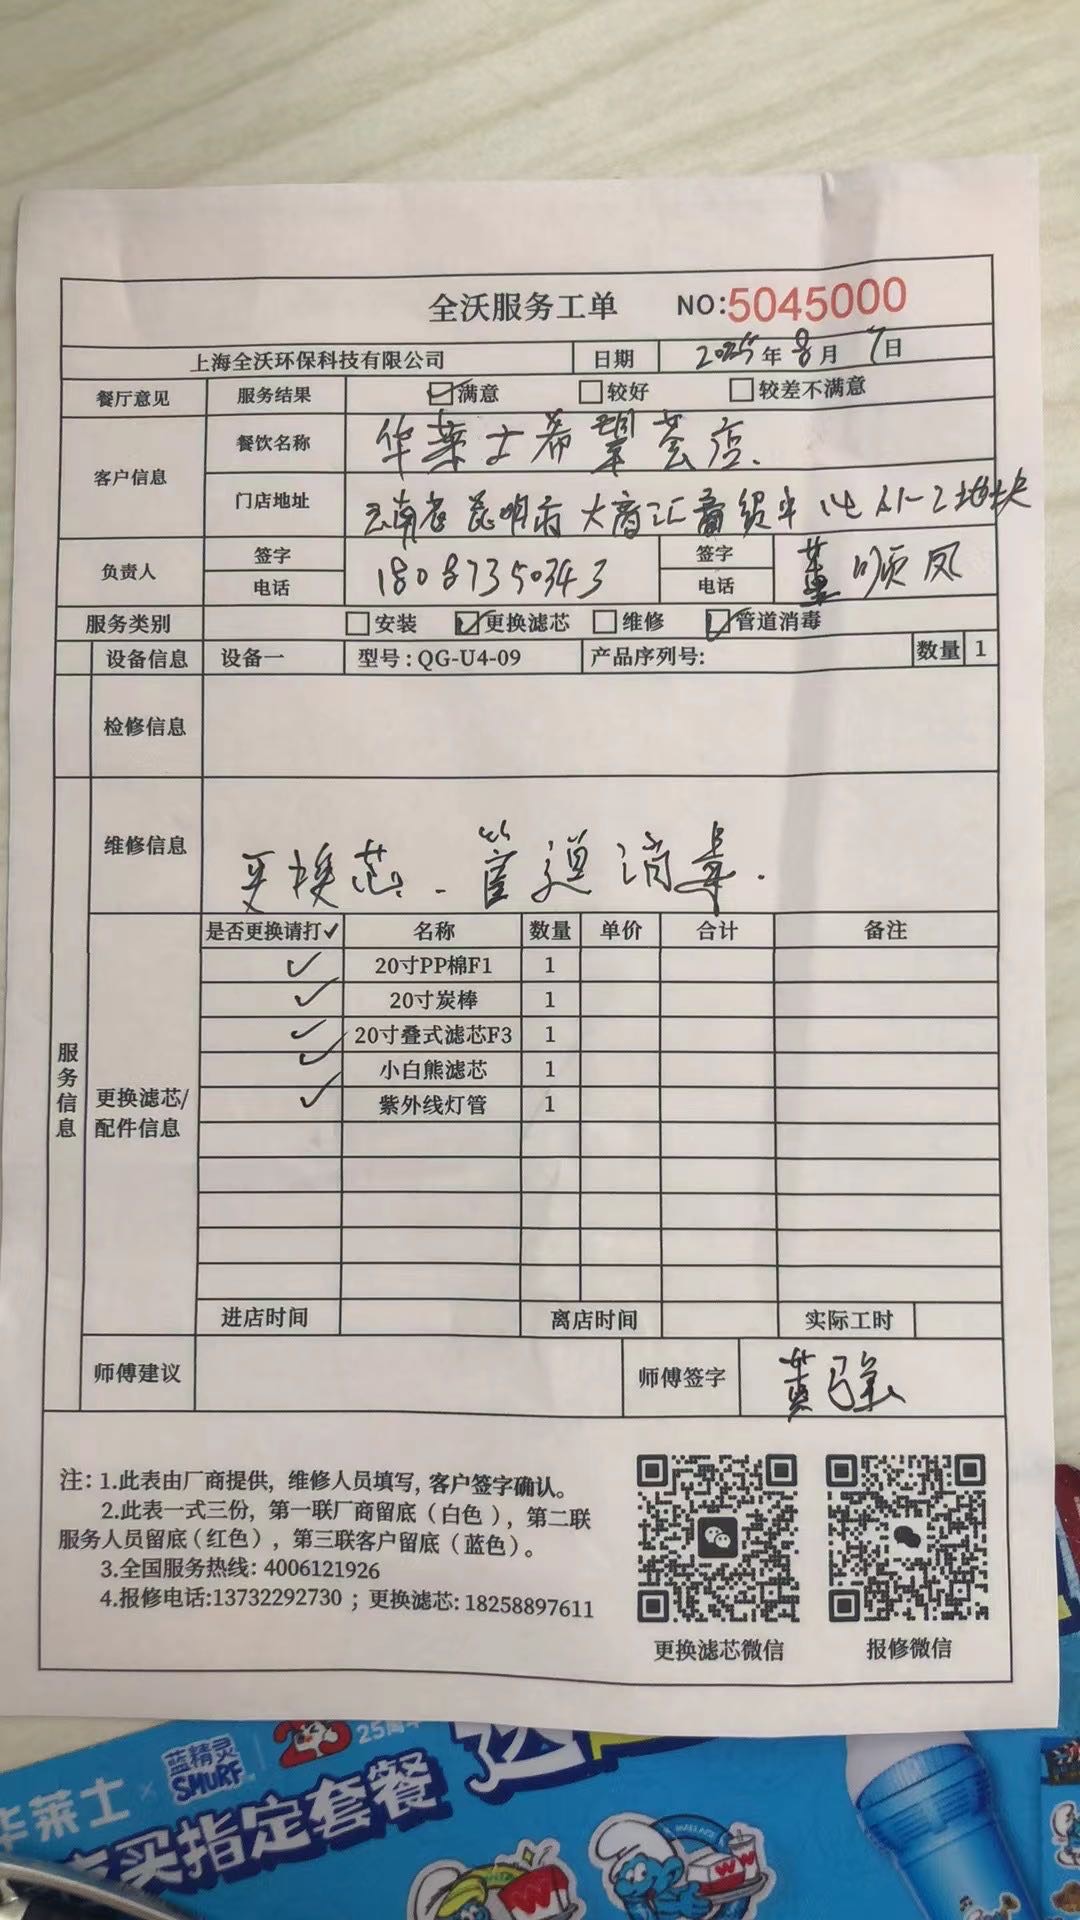 全沃服务工单 NO:5045000
上海全沃环保科技有限公司 日期 2025年8月7日
餐厅意见 服务结果 ☑满意 □较好 □较差不满意
客户信息 餐饮名称 华莱士希望荟店.
门店地址 云南省昆明市大商汇商贸中心A1-2地块
负责人 签字 电话 18087350343 签字 电话 董顺凤
服务类别 □安装 ☑更换滤芯 □维修 ☑管道消毒
设备信息 设备一 型号:QG-U4-09 产品序列号: 数量 1
检修信息
维修信息 更换芯.管道消毒.
服务信息
更换滤芯/配件信息
是否更换请打✓ 名称 数量 单价 合计 备注
✓ 20寸PP棉F1 1
✓ 20寸炭棒 1
✓ 20寸叠式滤芯F3 1
✓ 小白熊滤芯 1
✓ 紫外线灯管 1
进店时间 离店时间 实际工时
师傅建议 师傅签字 黄强
注: 1.此表由厂商提供, 维修人员填写, 客户签字确认。
2.此表一式三份, 第一联厂商留底（白色）, 第二联
服务人员留底（红色）, 第三联客户留底（蓝色）。
3.全国服务热线: 4006121926
4.报修电话:13732292730 ; 更换滤芯: 18258897611
更换滤芯微信 报修微信
华莱士 × 蓝精灵 SMURF 25周年
买指定套餐 送